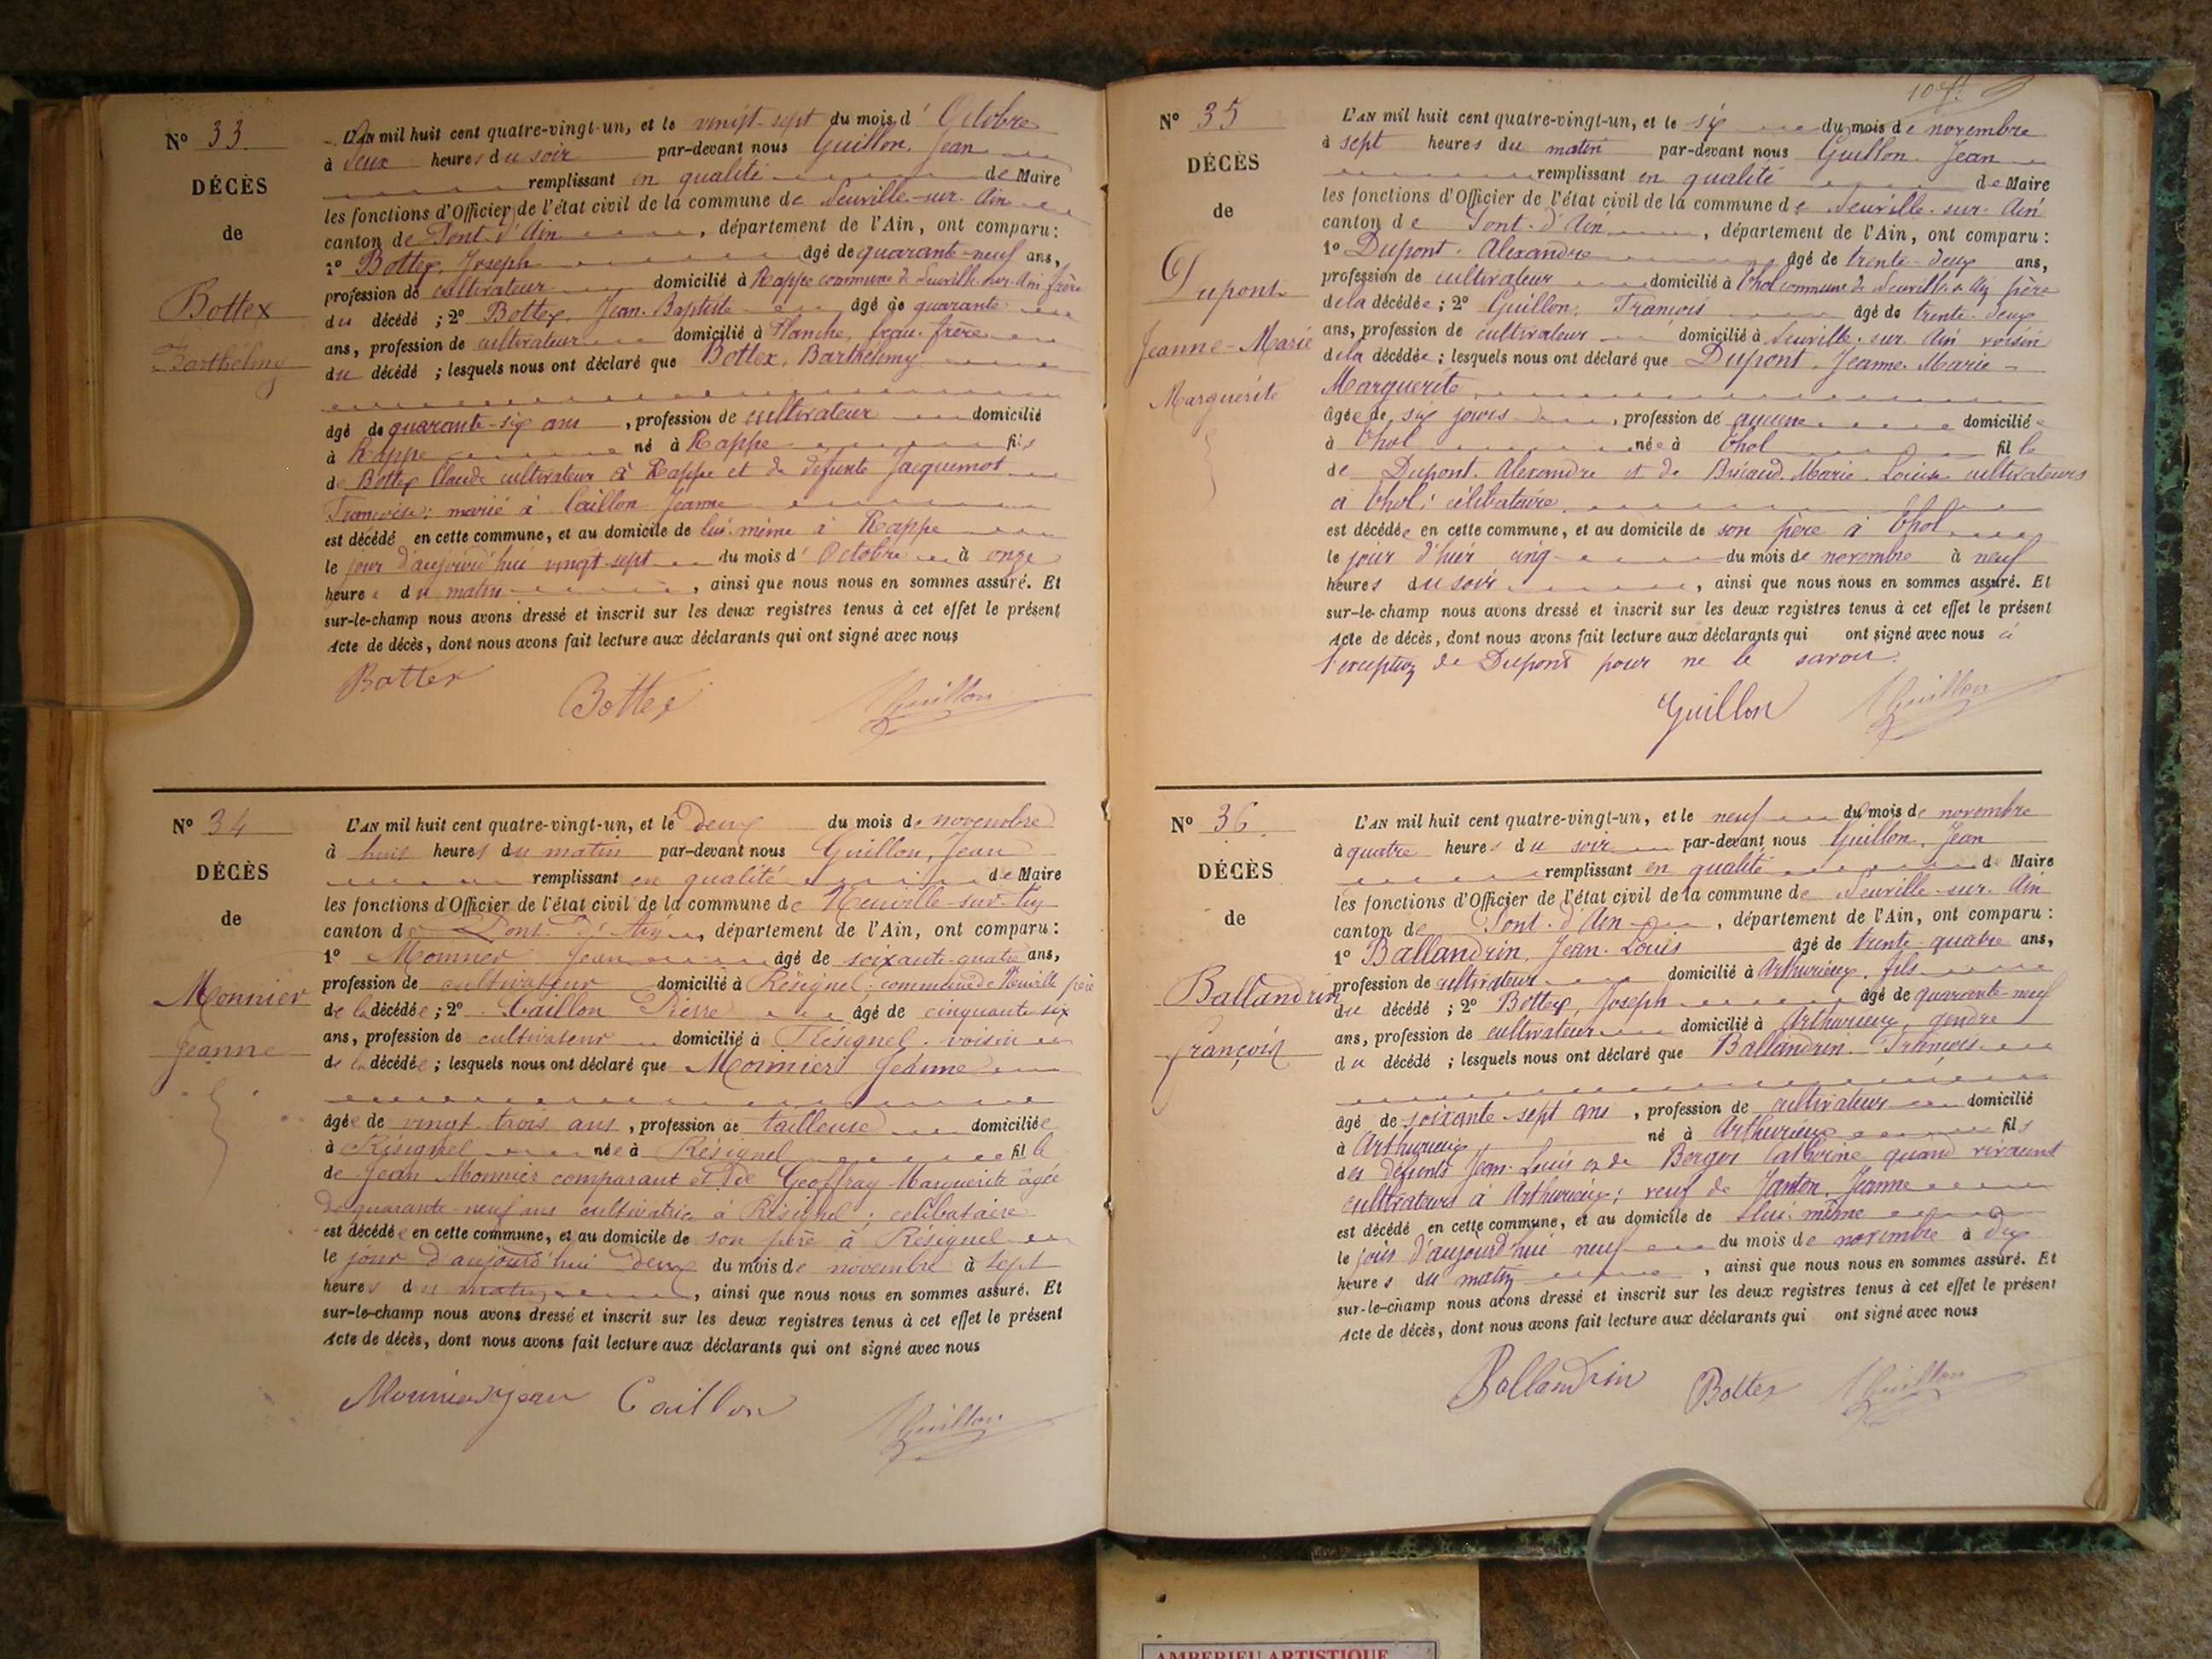 Nº 33
DÉCÈS
de
Bottex
Barthélemy
L'AN mil huit cent quatre-vingt-un, et le vingt-sept du mois d' Octobre
à deux heures du soir par-devant nous Guillon, Jean
remplissant en qualité de Maire
les fonctions d'Officier de l'état civil de la commune de Neuville-sur-Ain
canton de Pont-d'Ain, département de l'Ain, ont comparu :
1º Bottex, Joseph âgé de quarante-neuf ans,
profession de cultivateur domicilié à Rappe commune de Neuville-sur-Ain frère
du décédé ; 2º Bottex, Jean-Baptiste âgé de quarante
ans, profession de cultivateur domicilié à Planche, beau-frère
du décédé ; lesquels nous ont déclaré que Bottex, Barthélemy
âgé de quarante-six ans, profession de cultivateur domicilié
à Rappe né à Rappe fils
de Bottex Claude cultivateur à Rappe et de défunte Jacquemot
Françoise ; marié à Caillon Jeanne
est décédé en cette commune, et au domicile de lui-même à Rappe
le jour d'aujourd'hui vingt-sept du mois d' Octobre à onze
heures du matin, ainsi que nous nous en sommes assuré. Et
sur-le-champ nous avons dressé et inscrit sur les deux registres tenus à cet effet le présent
Acte de décès, dont nous avons fait lecture aux déclarants qui ont signé avec nous
Bottex Bottex Guillon
Nº 34
DÉCÈS
de
Monnier
Jeanne
L'AN mil huit cent quatre-vingt-un, et le deux du mois de novembre
à huit heures du matin par-devant nous Guillon, Jean
remplissant en qualité de Maire
les fonctions d'Officier de l'état civil de la commune de Neuville-sur-Ain
canton de Pont-d'Ain, département de l'Ain, ont comparu :
1º Monnier Jean âgé de soixante-quatre ans,
profession de cultivateur domicilié à Résignel, commune de Neuville père
de la décédée ; 2º Caillon Pierre âgé de cinquante six
ans, profession de cultivateur domicilié à Résignel voisin
de la décédée ; lesquels nous ont déclaré que Monnier Jeanne
âgée de vingt trois ans, profession de tailleuse domiciliée
à Résignel née à Résignel fille
de Jean Monnier comparant et de Geoffray Marguerite âgée
de quarante-neuf ans cultivatrice à Résignel ; célibataire
est décédée en cette commune, et au domicile de son père à Résignel
le jour d'aujourd'hui deux du mois de novembre à sept
heures du matin, ainsi que nous nous en sommes assuré. Et
sur-le-champ nous avons dressé et inscrit sur les deux registres tenus à cet effet le présent
Acte de décès, dont nous avons fait lecture aux déclarants qui ont signé avec nous
Monnier Jean Caillon Guillon
Nº 35
DÉCÈS
de
Dupont
Jeanne-Marie
Marguerite
L'AN mil huit cent quatre-vingt-un, et le six du mois de novembre
à sept heures du matin par-devant nous Guillon Jean
remplissant en qualité de Maire
les fonctions d'Officier de l'état civil de la commune de Neuville-sur-Ain
canton de Pont-d'Ain, département de l'Ain, ont comparu :
1º Dupont Alexandre âgé de trente-deux ans,
profession de cultivateur domicilié à Thol commune de Neuville s. Ain père
de la décédée ; 2º Guillon, François âgé de trente-deux
ans, profession de cultivateur domicilié à Neuville-sur-Ain voisin
de la décédée ; lesquels nous ont déclaré que Dupont, Jeanne Marie
Marguerite
âgée de six jours, profession de aucune domiciliée
à Thol née à Thol fille
de Dupont Alexandre et de Marie Louise cultivateurs
à Thol ; célibataire
est décédée en cette commune, et au domicile de son père à Thol
le jour d'hier cinq du mois de novembre à neuf
heures du soir, ainsi que nous nous en sommes assuré. Et
sur-le-champ nous avons dressé et inscrit sur les deux registres tenus à cet effet le présent
Acte de décès, dont nous avons fait lecture aux déclarants qui ont signé avec nous à
l'exception de Dupont pour ne le savoir.
Guillon Guillon
Nº 36
DÉCÈS
de
Ballandrin
François
L'AN mil huit cent quatre-vingt-un, et le neuf du mois de novembre
à quatre heures du soir par-devant nous Guillon, Jean
remplissant en qualité de Maire
les fonctions d'Officier de l'état civil de la commune de Neuville-sur-Ain
canton de Pont-d'Ain, département de l'Ain, ont comparu :
1º Ballandrin, Jean-Louis âgé de trente-quatre ans,
profession de cultivateur domicilié à Arthurieux, fils
du décédé ; 2º Bottex, Joseph âgé de quarante-neuf
ans, profession de cultivateur domicilié à Arthurieux, gendre
du décédé ; lesquels nous ont déclaré que Ballandrin François
âgé de soixante-sept ans, profession de cultivateur domicilié
à Arthurieux né à Arthurieux fils
des défunts Jean-Louis et de Berger Catherine quand vivaient
cultivateurs à Arthurieux ; veuf de Janton, Jeanne
est décédé en cette commune, et au domicile de lui-même
le jour d'aujourd'hui neuf du mois de novembre à dix
heures du matin, ainsi que nous nous en sommes assuré. Et
sur-le-champ nous avons dressé et inscrit sur les deux registres tenus à cet effet le présent
Acte de décès, dont nous avons fait lecture aux déclarants qui ont signé avec nous
Ballandrin Bottex Guillon
AMBERIEU ARTISTIQUE